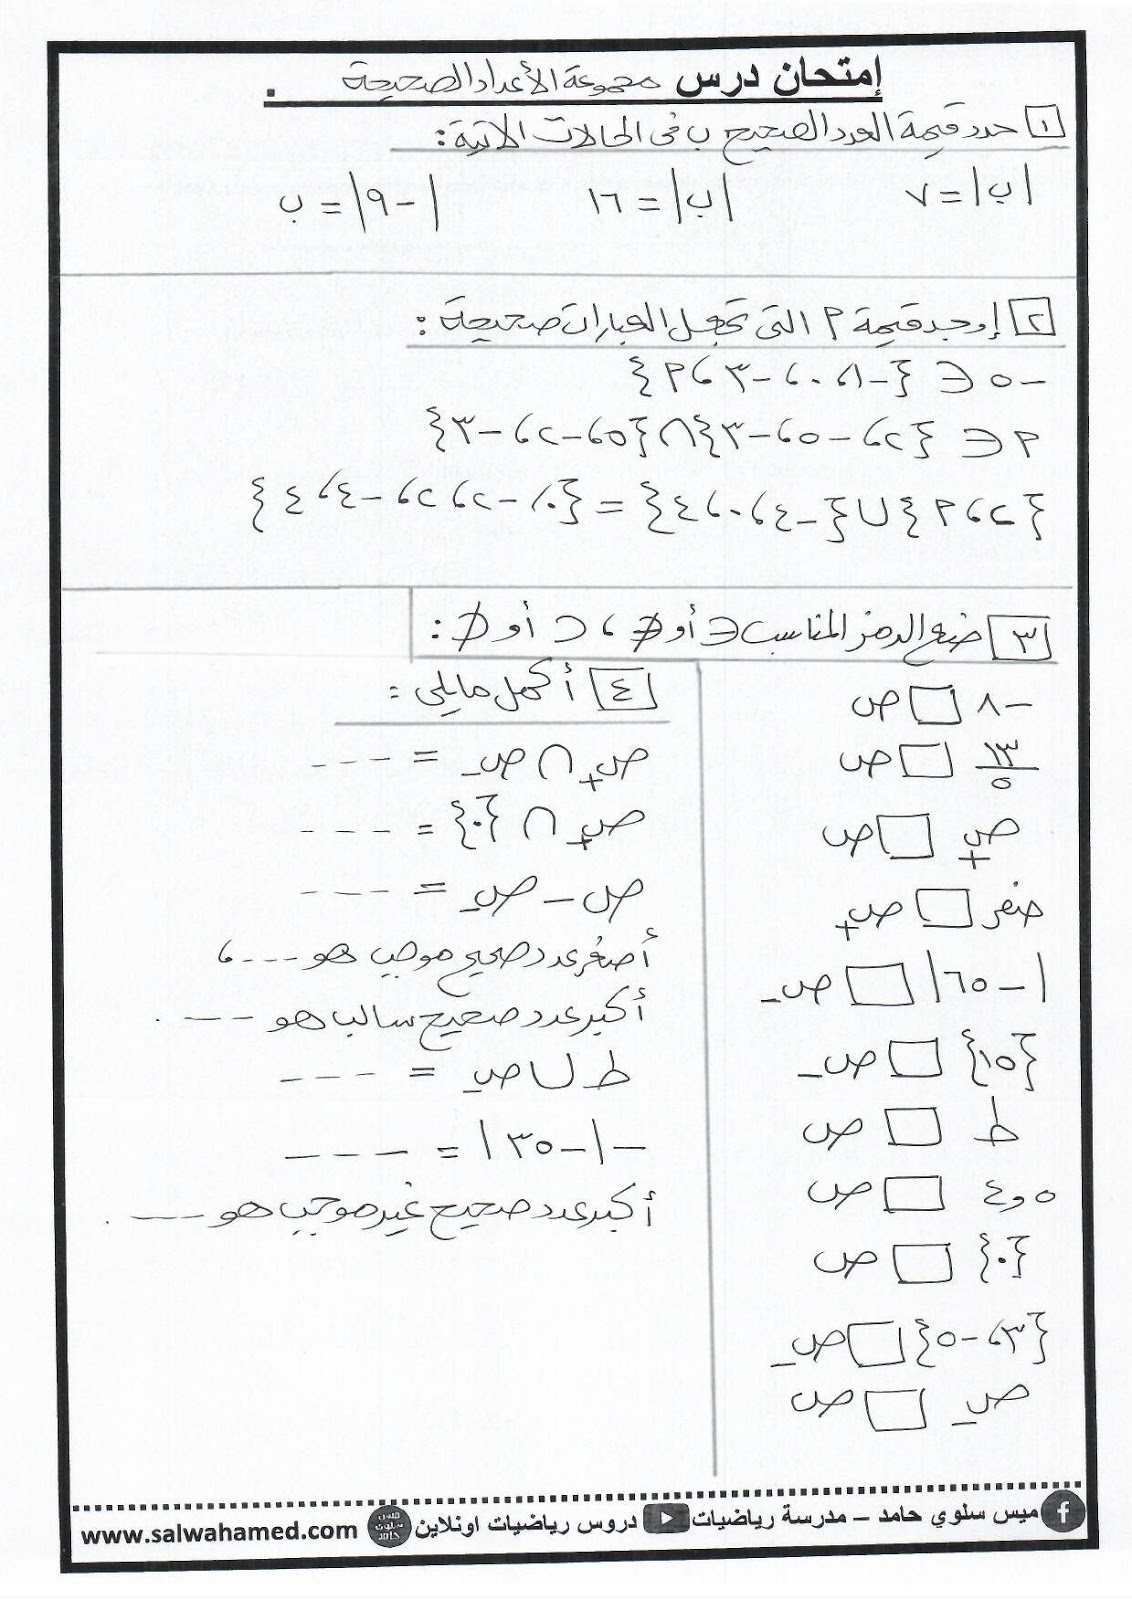 إمتحان درس مجموعة الأعداد الصحيحة .
١ حدد قيمة العدد الصحيح ب فى الحالات الآتية :
|ب| = ٧    |ب| = ١٦    |-٩| = ب
٢ إوجد قيمة م التى تجعل العبارات صحيحة :
-٥ ∈ {-٨، ٠، -٣، م}
م ∈ {٢، -٥، -٣} ∩ {٥، -٢، -٣}
{٢، م} ∪ {-٤، ٠، ٤} = {٠، -٢، ٢، -٤، ٤}
٣ ضع الرمز المناسب ∈ أو ∉ ، ⊂ أو ⊄ :
-٨ □ ص
١٣/٥ □ ص
ص+ □ ص
صفر □ ص+
|-٦٥| □ ص-
{١٥} □ ص-
ط □ ص
٥و٤ □ ص
{٠} □ ص
{٣، -٥} □ ص-
ص- □ ص
٤ أكمل مايلى :
ص+ ∩ ص- = ---
ص+ ∩ {٠} = ---
ص - ص- = ---
أصغر عدد صحيح موجب هو ---،
أكبر عدد صحيح سالب هو --- .
ط ∪ ص- = ---
-|-٣٥| = ---
أكبر عدد صحيح غير موجب هو --- .
ميس سلوي حامد – مدرسة رياضيات دروس رياضيات اونلاين www.salwahamed.com